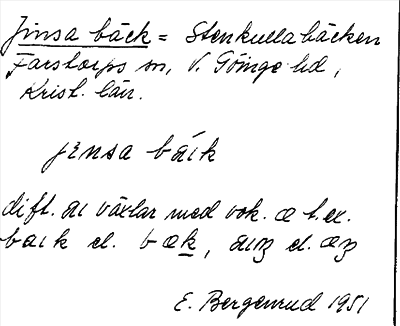 Jinsa bäck = Stenkullabäcken
Farstorps sn, V. Göinge hd,
Krist. län.
jinsa báik
dift. ai växlar med vok. æ t.ex.
baik el. bæk, aiʒ el. æʒ
E. Bergenrud 1951